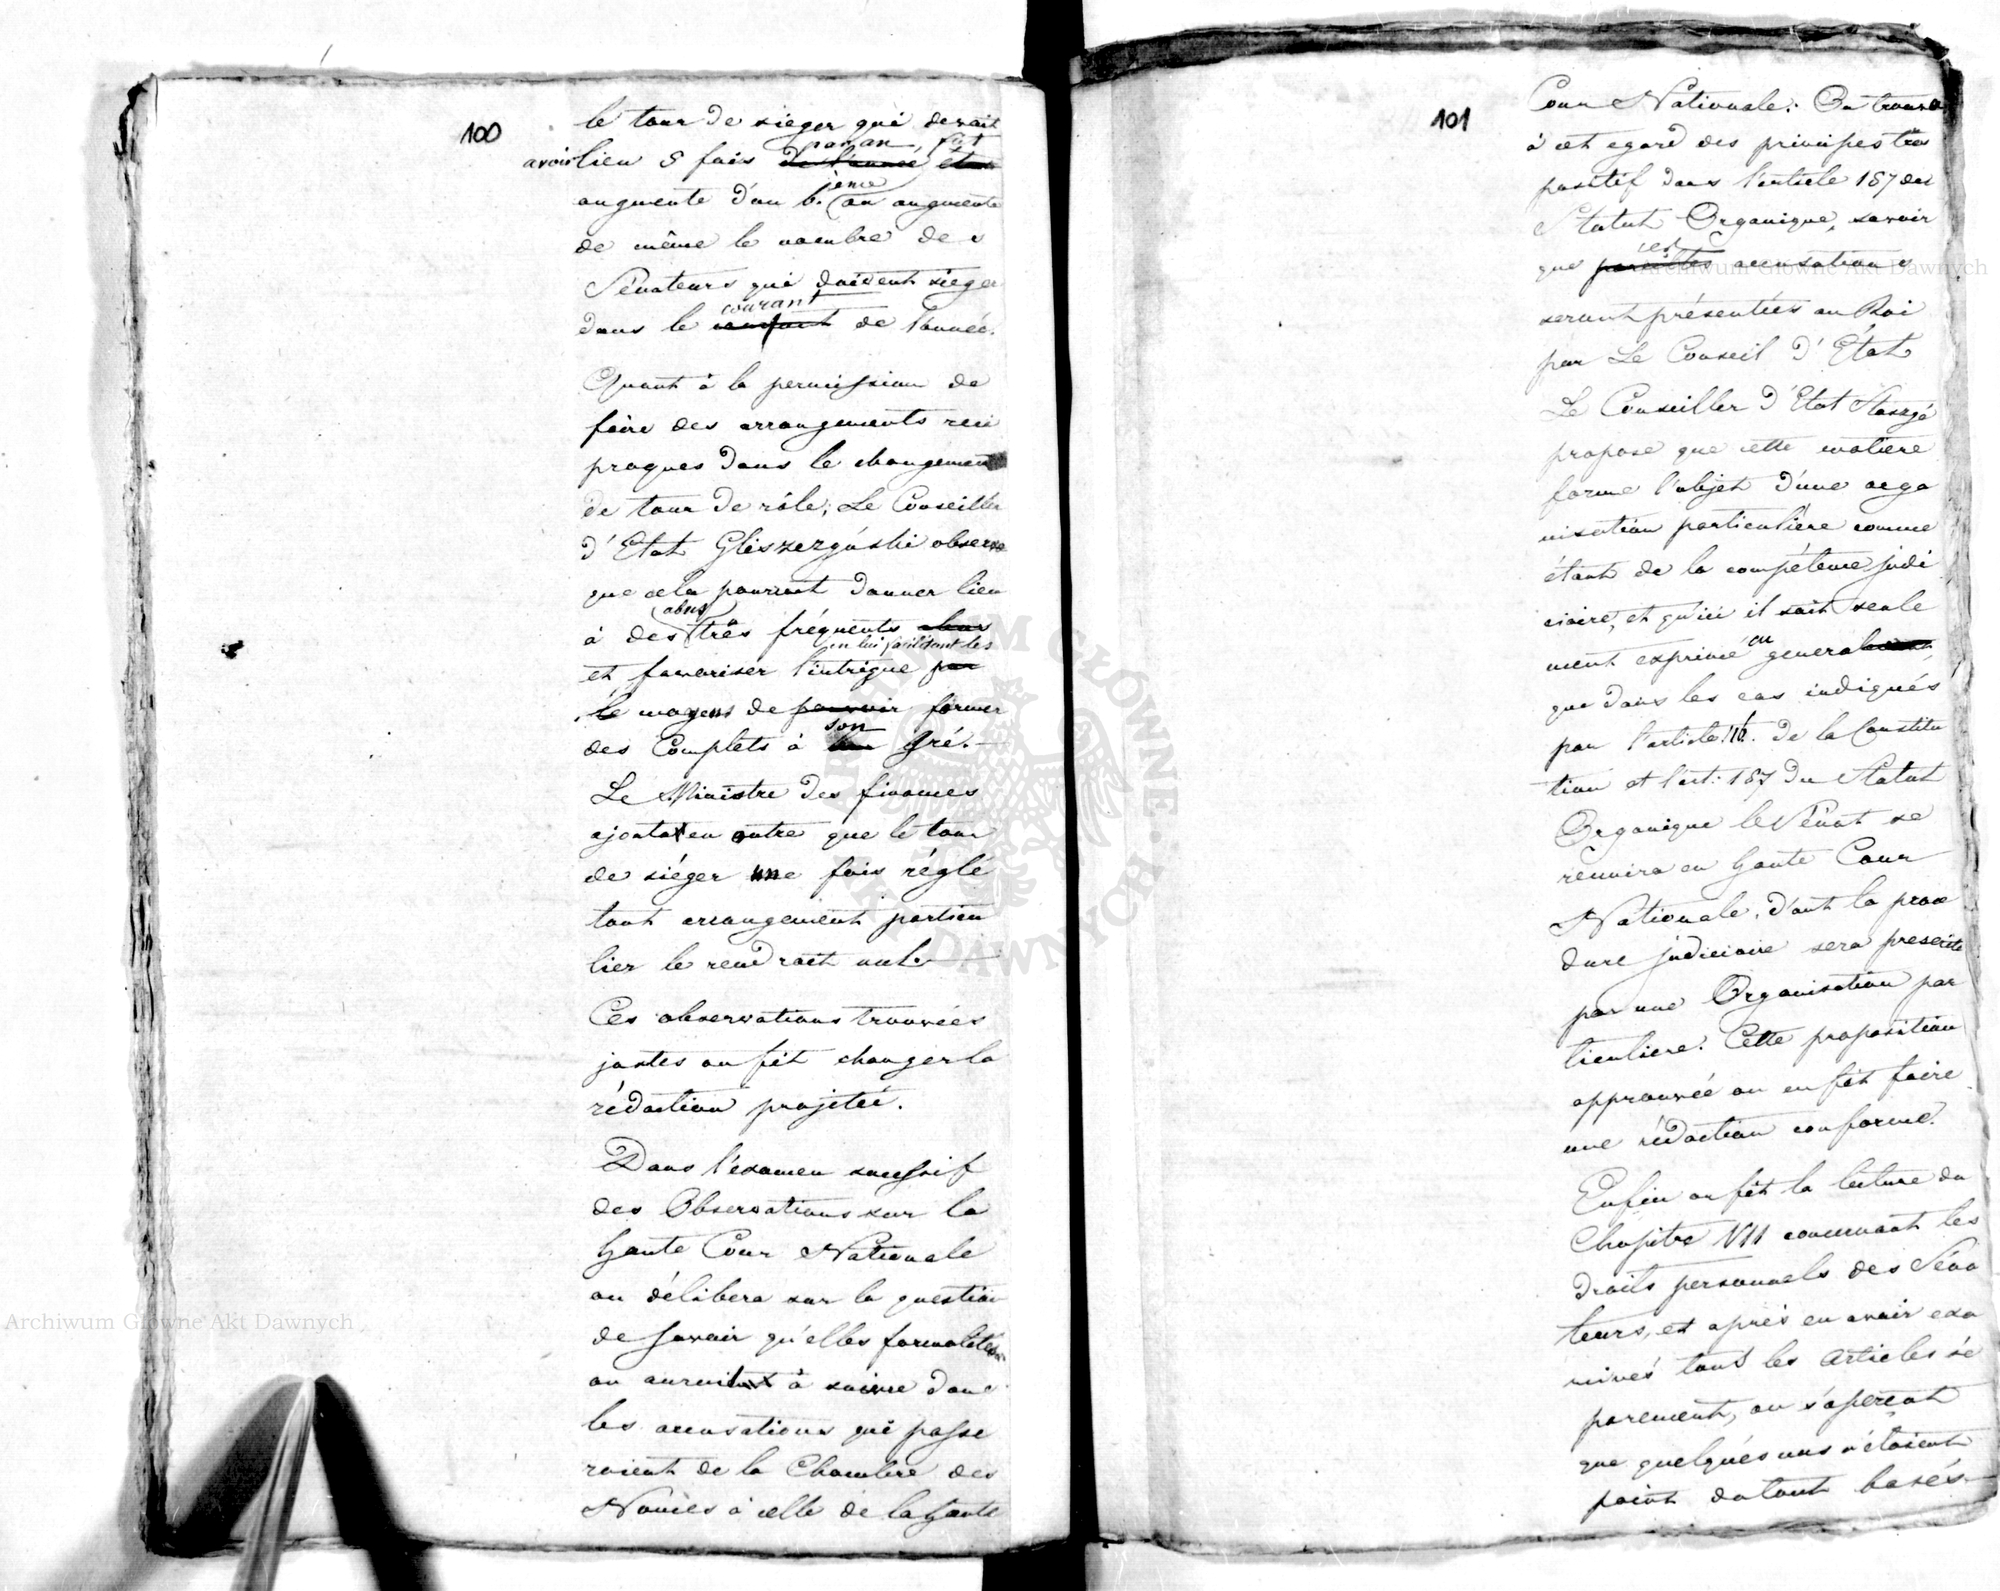 100
le tour de siéger qui devait
avoir lieu 5 fois de l'année par an, fut
augmenté d'un 6. ième on augmenta
de même le nombre des
Sénateurs qui doivent sièger
dans le courant de l'année.
Quant à la permission de
faire des arrangements reci
proques dans le changement
de tour de rôle; Le Conseiller
d'Etat Gliszczyński observe
que cela pourroit donner lieu
à des abus très fréquents
et favoriser l'intrigue en lui facilitant les par
le moyens de pouvoir former
des Complets à son gré.
Le Ministre des finances
ajouta en outre que le tour
de siéger une fois réglé
tout arrangement particu
lier le rendroit nul.
Ces observations trouvées
justes on fit changer la
rédaction projetée.
Dans l'examen successif
des Observations sur la
haute Cour Nationale
on délibera sur la question
de savoir qu'elles formalités
on auroit à suivre dans
les accusations qui passe
roient de la Chambre des
Nonces à celle de la haute
101
Cour Nationale. On trouva
à cet egard des principes très
positif dans l'article 157 du
Statut Organique, savoir
que pareilles ces accusations
seront présentées au Roi
par Le Conseil d'État
Le Conseiller d'Etat Staszyc
propose que cette matiere
forme l'objet d'une orga
nisation particulière comme
étant de la compétence judi
ciaire, et qu'ici il soit seule
ment exprimé en general
que dans les cas indiqués
par l'article 116. de la Constitu
tion et l'art: 157 du Statut
Organique le Sénat se
reunira en haute Cour
Nationale, dont la proce
dure judiciaire sera prescrite
par une Organisation par
ticuliere. Cette proposition
approuvée on en fit faire
une rédaction conforme.
Enfin on fit la lecture du
Chapitre VII concernant les
droits personnels des Séna
teurs, et après en avoir exa
minés tous les articles sé
parement, on s'aperçut
que quelques uns n'étoient
point du tout basés